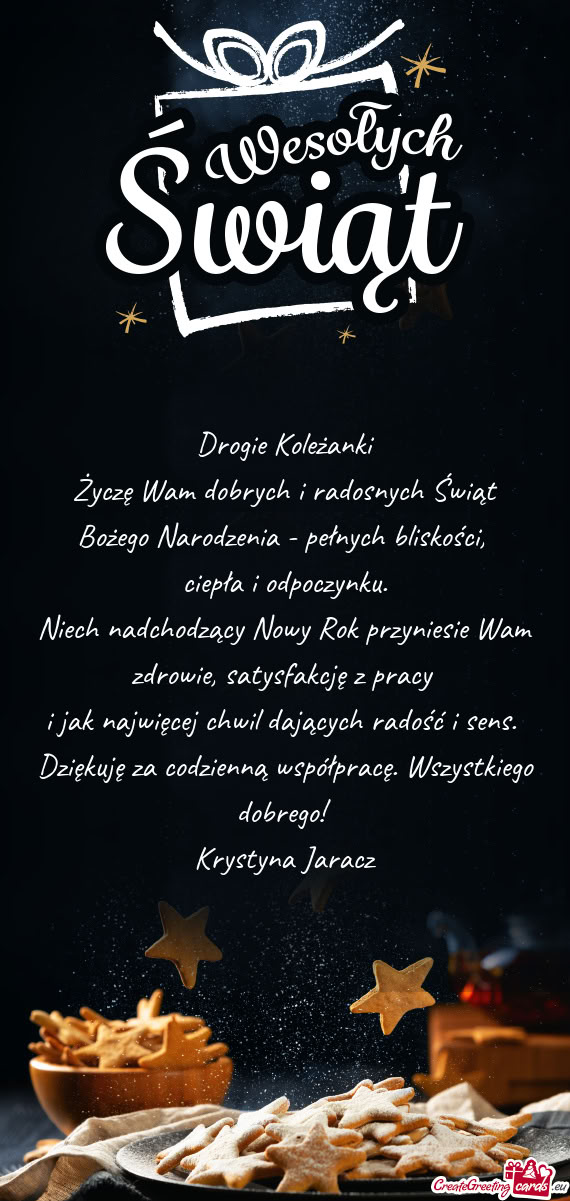 Wesołych
Świąt
Drogie Koleżanki
Życzę Wam dobrych i radosnych Świąt
Bożego Narodzenia - pełnych bliskości,
ciepła i odpoczynku.
Niech nadchodzący Nowy Rok przyniesie Wam
zdrowie, satysfakcję z pracy
i jak najwięcej chwil dających radość i sens.
Dziękuję za codzienną współpracę. Wszystkiego
dobrego!
Krystyna Jaracz
CreateGreetingcards.eu